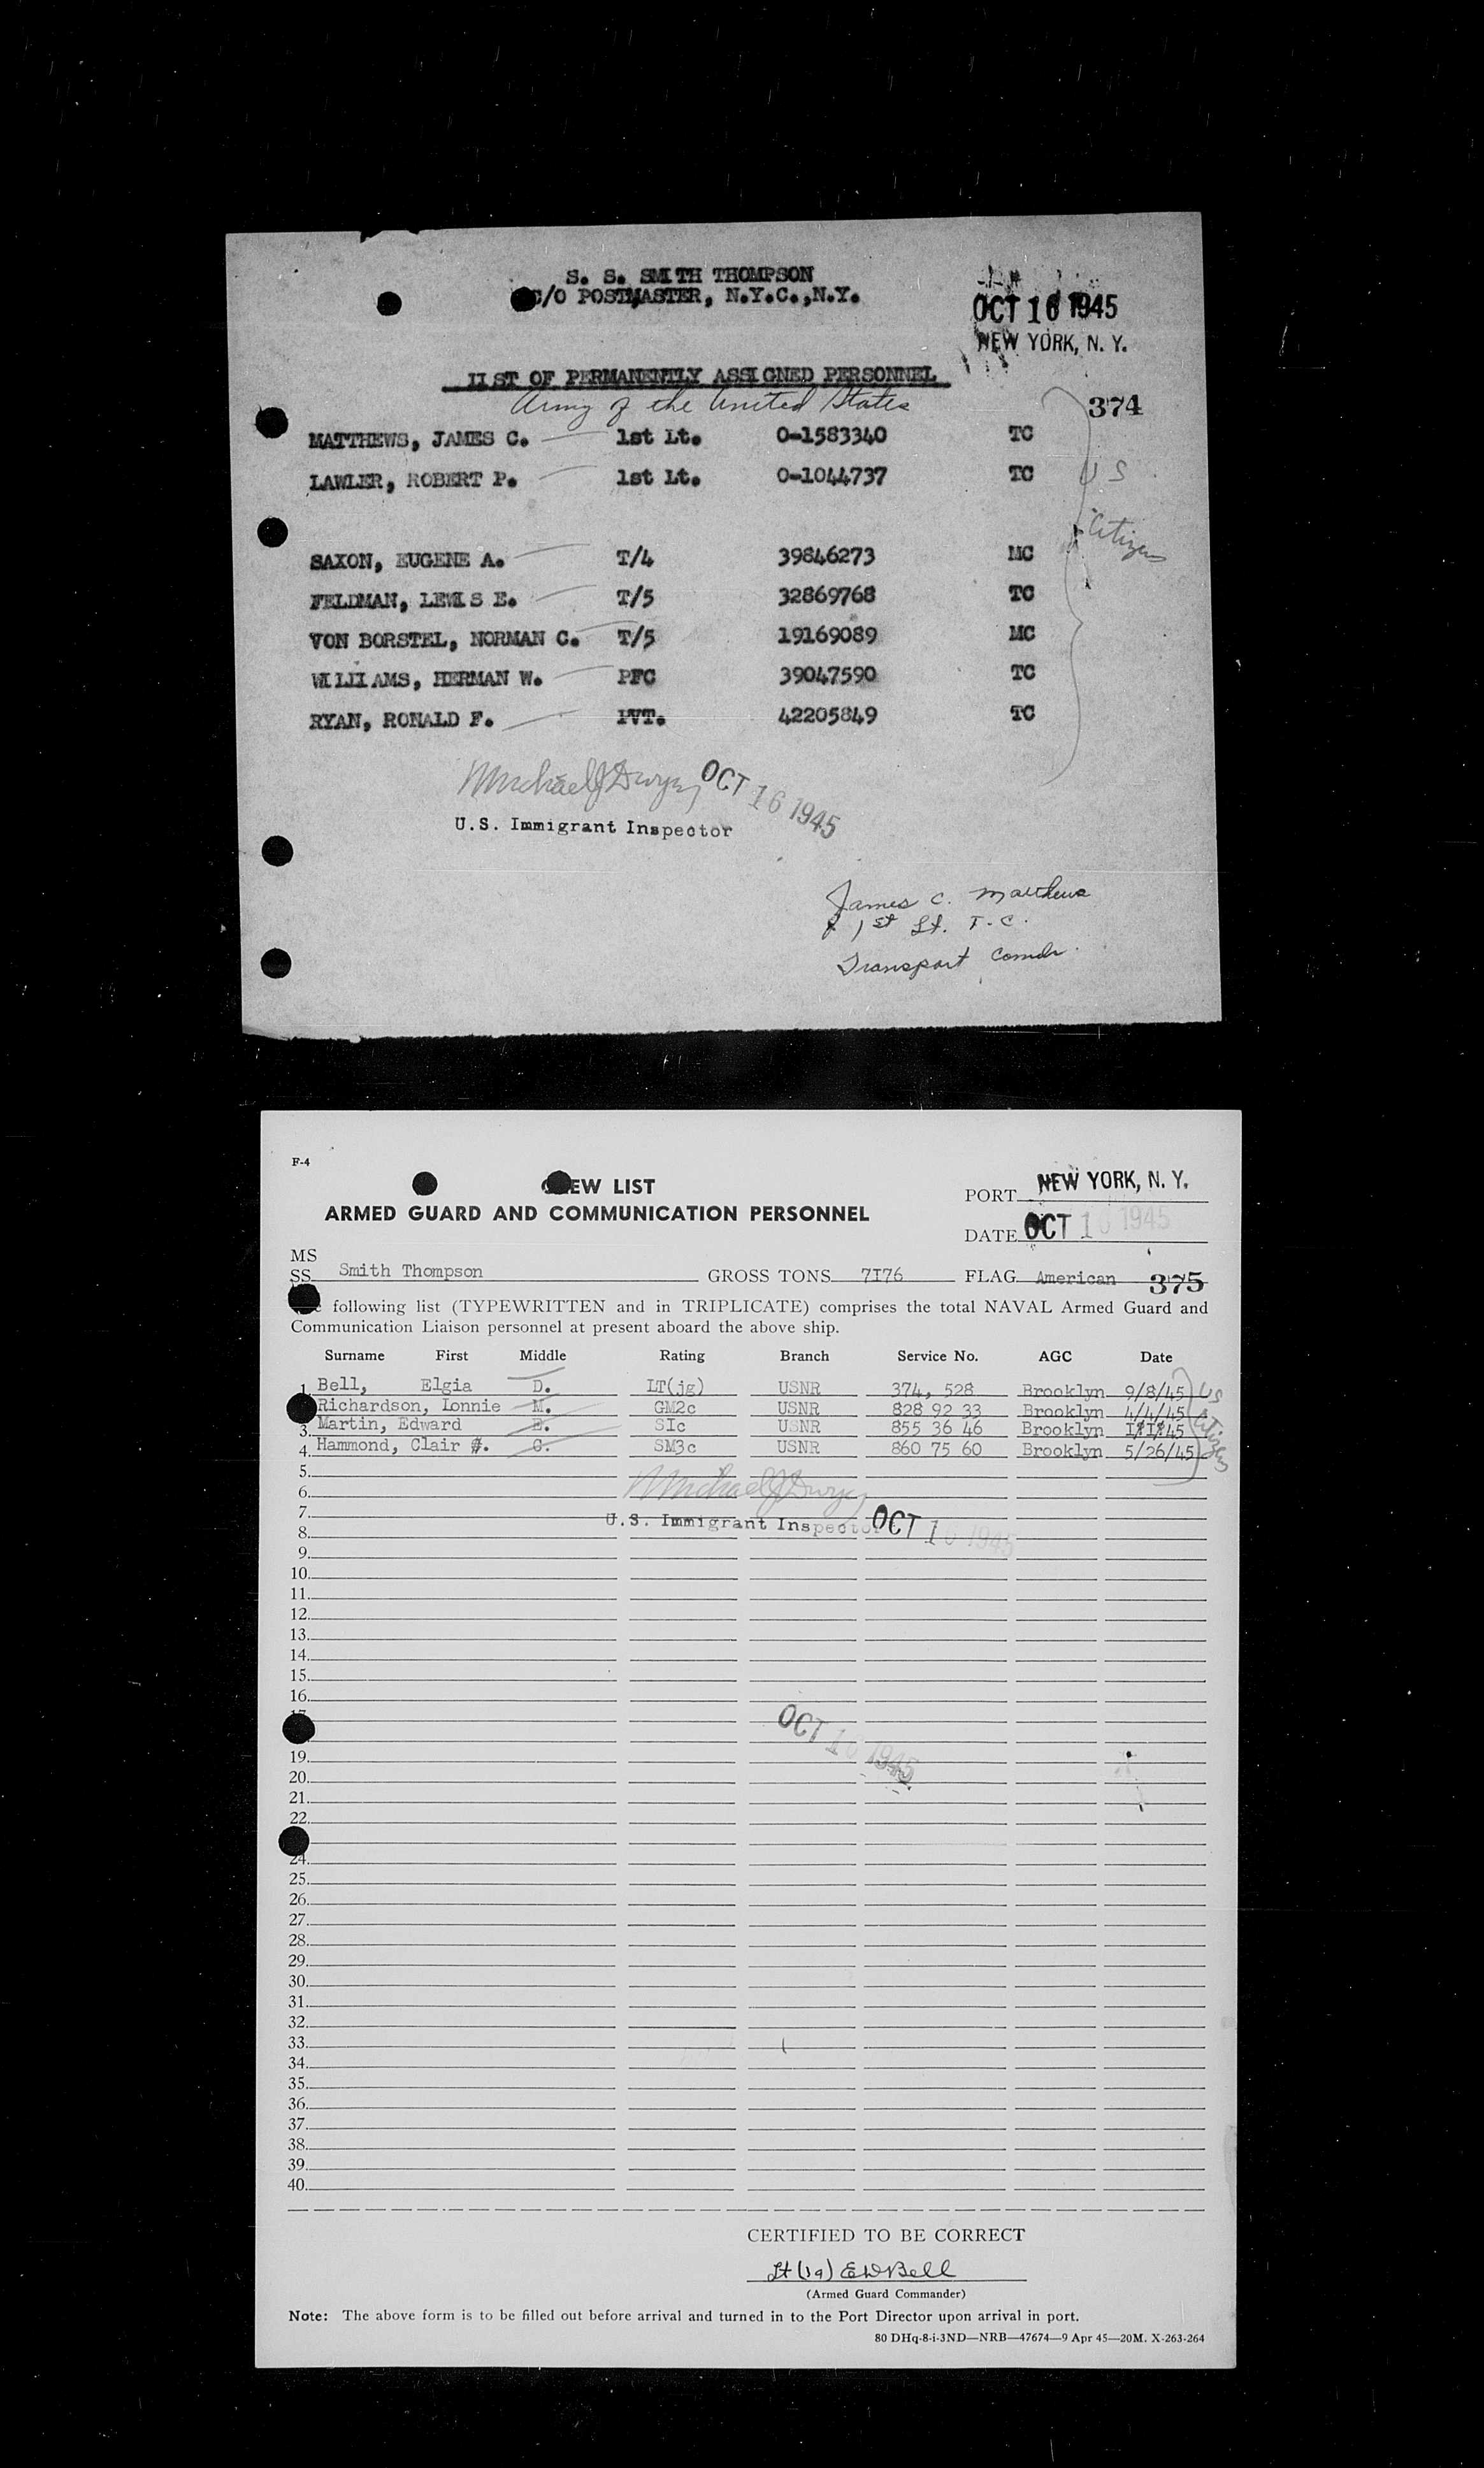 S. S. SMITH THOMPSON
C/O POSTMASTER, N.Y.C.,N.Y.
OCT 16 1945
NEW YORK, N. Y.
LIST OF PERMANENTLY ASSIGNED PERSONNEL
Army of the United States
374
MATTHEWS, JAMES C. 1st Lt. O-1583340 TC
LAWLER, ROBERT P. 1st Lt. O-1044737 TC
US
Citizens
SAXON, EUGENE A. T/4 39846273 MC
FELDMAN, LEWIS E. T/5 32869768 TC
VON BORSTEL, NORMAN C. T/5 19169089 MC
WILLIAMS, HERMAN W. PFC 39047590 TC
RYAN, RONALD F. PVT. 42205849 TC
Michael J Dwyer OCT 16 1945
U.S. Immigrant Inspector
James C. Matthews
1st Lt. T.C.
Transport Comdr.
F-4
CREW LIST
ARMED GUARD AND COMMUNICATION PERSONNEL
PORT NEW YORK, N. Y.
DATE OCT 16 1945
MS
SS Smith Thompson GROSS TONS 7I76 FLAG American 375
following list (TYPEWRITTEN and in TRIPLICATE) comprises the total NAVAL Armed Guard and
Communication Liaison personnel at present aboard the above ship.
Surname First Middle Rating Branch Service No. AGC Date
1. Bell, Elgia D. LT(jg) USNR 374, 528 Brooklyn 9/8/45 US
Richardson, Lonnie M. GM2c USNR 828 92 33 Brooklyn 4/4/45 Citizens
3. Martin, Edward E. SIc USNR 855 36 46 Brooklyn I/I/45
4. Hammond, Clair C. SM3c USNR 860 75 60 Brooklyn 5/26/45
5.
6. Michael J Dwyer
7.
U.S. Immigrant Inspector OCT 16 1945
8.
9.
10.
11.
12.
13.
14.
15.
16.
17.
OCT 16 1945
19.
20.
21.
22.
24.
25.
26.
27.
28.
29.
30.
31.
32.
33.
34.
35.
36.
37.
38.
39.
40.
CERTIFIED TO BE CORRECT
Lt (jg) E D Bell
(Armed Guard Commander)
Note: The above form is to be filled out before arrival and turned in to the Port Director upon arrival in port.
80 DHq-8-i-3ND—NRB—47674—9 Apr 45—20M. X-263-264